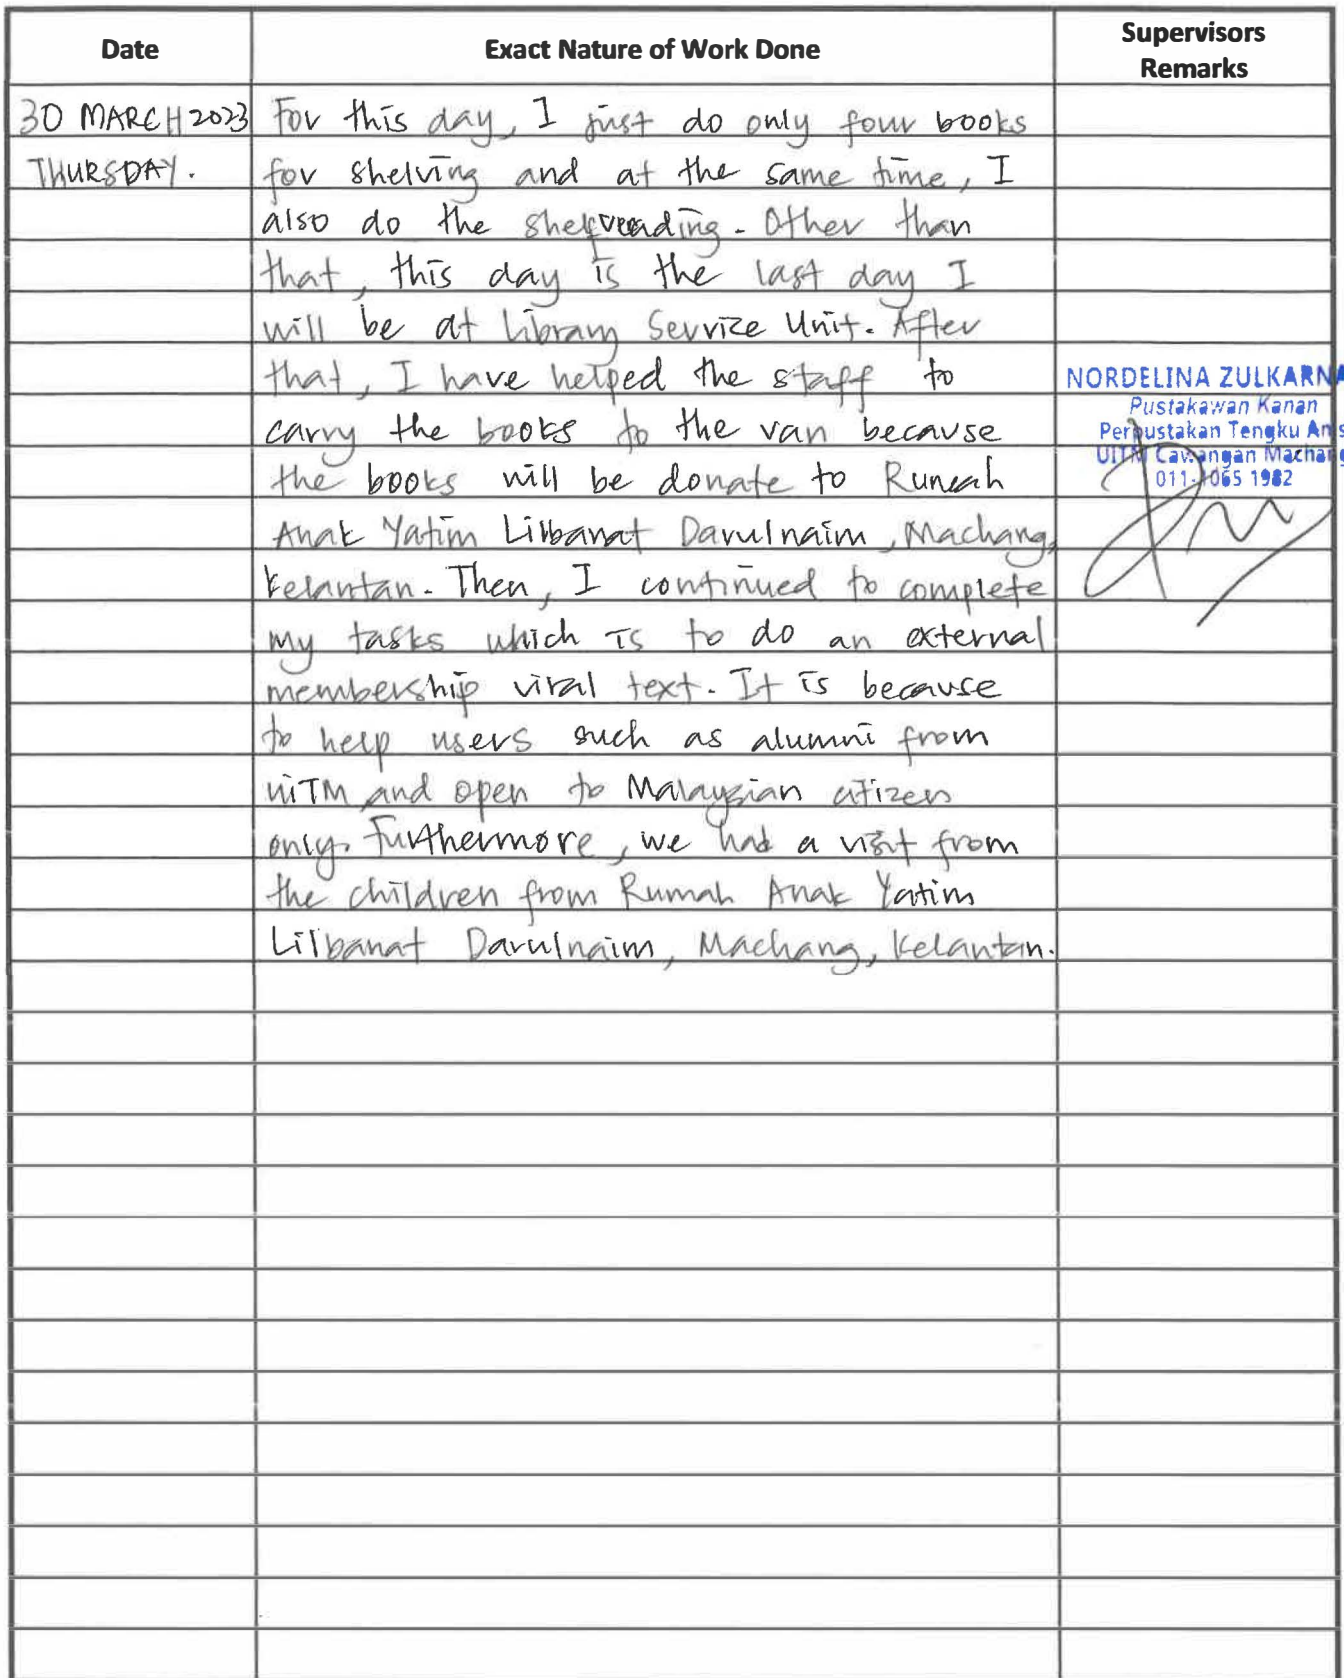 Date
Exact Nature of Work Done
Supervisors
Remarks
30 MARCH 2023
THURSDAY.
For this day, I just do only four books
for shelving and at the same time, I
also do the shelfreading. Other than
that, this day is the last day I
will be at Library Service Unit. After
that, I have helped the staff to
carry the books to the van because
the books will be donate to Rumah
Anak Yatim Lilbanat Darulnaim, Machang,
Kelantan. Then, I continued to complete
my tasks which is to do an external
membership viral text. It is because
to help users such as alumni from
UiTM and open to Malaysian citizen
only. Furthermore, we had a visit from
the children from Rumah Anak Yatim
Lilbanat Darulnaim, Machang, Kelantan.
NORDELINA ZULKARNA
Pustakawan Kanan
Perpustakan Tengku Anis
UITM Cawangan Machang
011-1065 1982